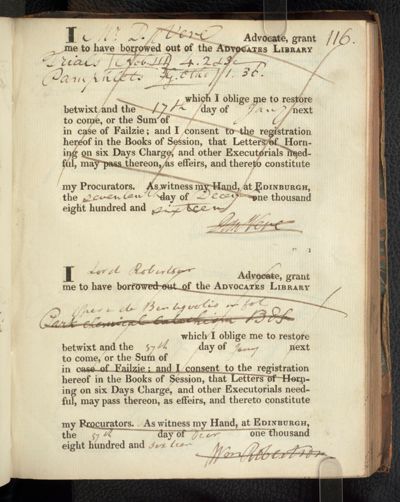 116.
I Mr. D. Advocate, grant
me to have borrowed out of the ADVOCATES LIBRARY
Trials
Pamphlets 1. 36.
which I oblige me to restore
betwixt and the 17th day of Jany next
to come, or the Sum of
in case of Failzie; and I consent to the registration
hereof in the Books of Session, that Letters of Horn-
ing on six Days Charge, and other Executorials need-
ful, may pass thereon, as effeirs, and thereto constitute
my Procurators. As witness my Hand, at EDINBURGH,
the seventeenth day of Decr one thousand
eight hundred and sixteen
I Lord Robertson Advocate, grant
me to have borrowed out of the ADVOCATES LIBRARY
which I oblige me to restore
betwixt and the day of Jany next
to come, or the Sum of
in case of Failzie; and I consent to the registration
hereof in the Books of Session, that Letters of Horn-
ing on six Days Charge, and other Executorials need-
ful, may pass thereon, as effeirs, and thereto constitute
my Procurators. As witness my Hand, at EDINBURGH,
the day of one thousand
eight hundred and sixteen
Wm Robertson